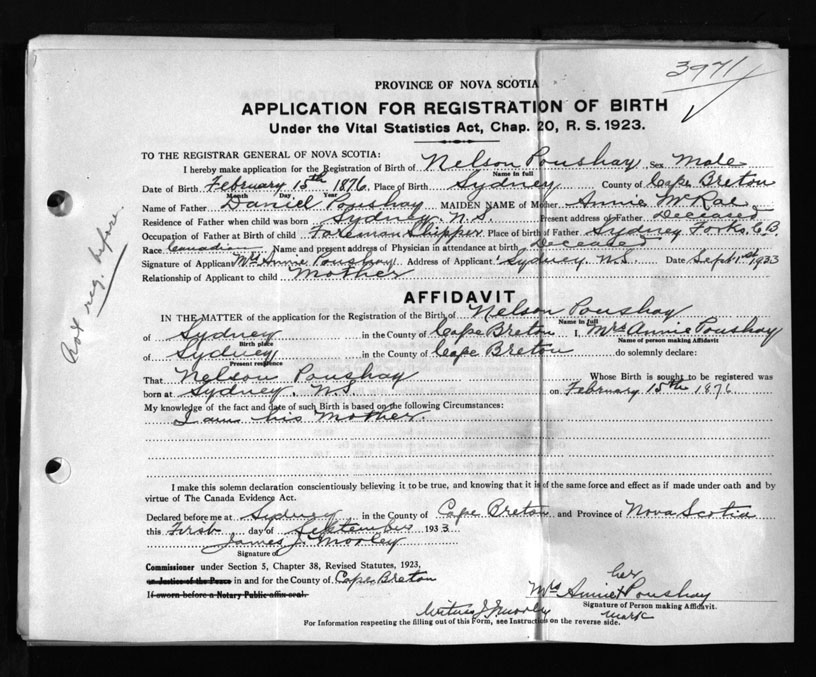 3971
PROVINCE OF NOVA SCOTIA
APPLICATION FOR REGISTRATION OF BIRTH
Under the Vital Statistics Act, Chap. 20, R. S. 1923.
TO THE REGISTRAR GENERAL OF NOVA SCOTIA:
I hereby make application for the Registration of Birth of Nelson Poushay, Sex Male
Name in full
Date of Birth February 15th 1876, Place of Birth Sydney County of Cape Breton
Month Day Year
Name of Father Daniel Poushay MAIDEN NAME of Mother Annie McRae
Residence of Father when child was born Sydney. N.S. Present address of Father Deceased
Occupation of Father at Birth of child Foreman Shipper Place of birth of Father Sydney Forks, C.B.
Race Canadian Name and present address of Physician in attendance at birth Deceased
Signature of Applicant Mrs Annie Poushay Address of Applicant Sydney. N.S. Date Sept 1st 1933
Relationship of Applicant to child Mother
Not reg. before.
AFFIDAVIT
IN THE MATTER of the application for the Registration of the Birth of Nelson Poushay
Name in full
of Sydney in the County of Cape Breton I, Mrs Annie Poushay
Birth place Name of person making Affidavit
of Sydney in the County of Cape Breton do solemnly declare:
Present residence
That Nelson Poushay Whose Birth is sought to be registered was
born at Sydney. N.S. on February 15th 1876
My knowledge of the fact and date of such Birth is based on the following Circumstances:
I am his Mother.
I make this solemn declaration conscientiously believing it to be true, and knowing that it is of the same force and effect as if made under oath and by
virtue of The Canada Evidence Act.
Declared before me at Sydney, in the County of Cape Breton and Province of Nova Scotia
this First day of September 1933
James J. Morley
Signature of
Commissioner under Section 5, Chapter 38, Revised Statutes, 1923,
or Justice of the Peace in and for the County of Cape Breton
If sworn before a Notary Public affix seal.
her
Mrs Annie X Poushay
Signature of Person making Affidavit.
mark
Witness J J Morley
For Information respecting the filling out of this Form, see Instruction on the reverse side.